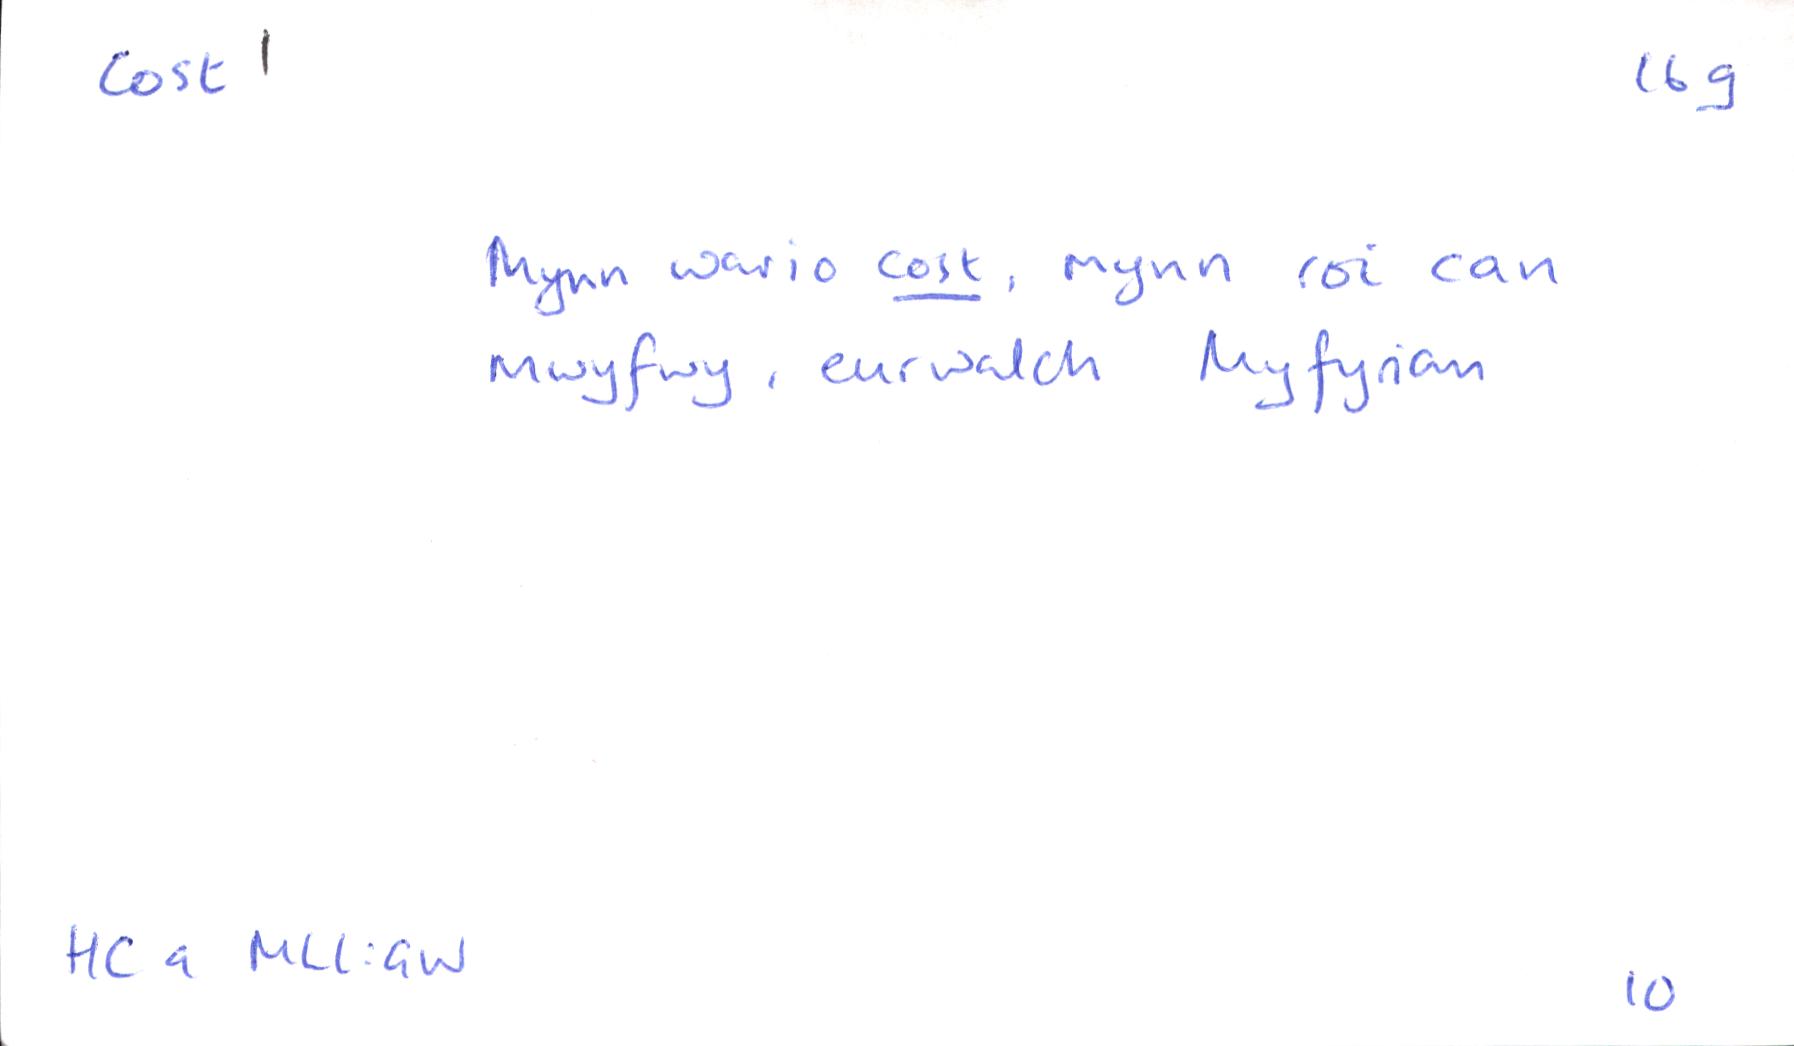 Cost 1
16g
Mynn wario cost, mynn roi can
Mwyfwy, eurwalch Myfyrian
HC a MLl: GW
10